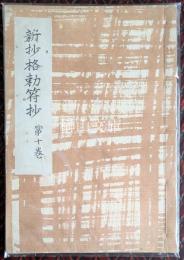 新抄格勅符抄
第十巻